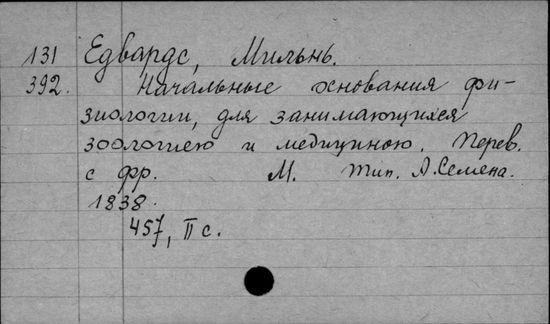 131 Едвардс, Мильнь.
392. Начальные основания фи-
зиологии, для занимающихся
зоологиею и медициною. Перев.
с фр. М. тип. А. Семена.
1838.
457, II с.